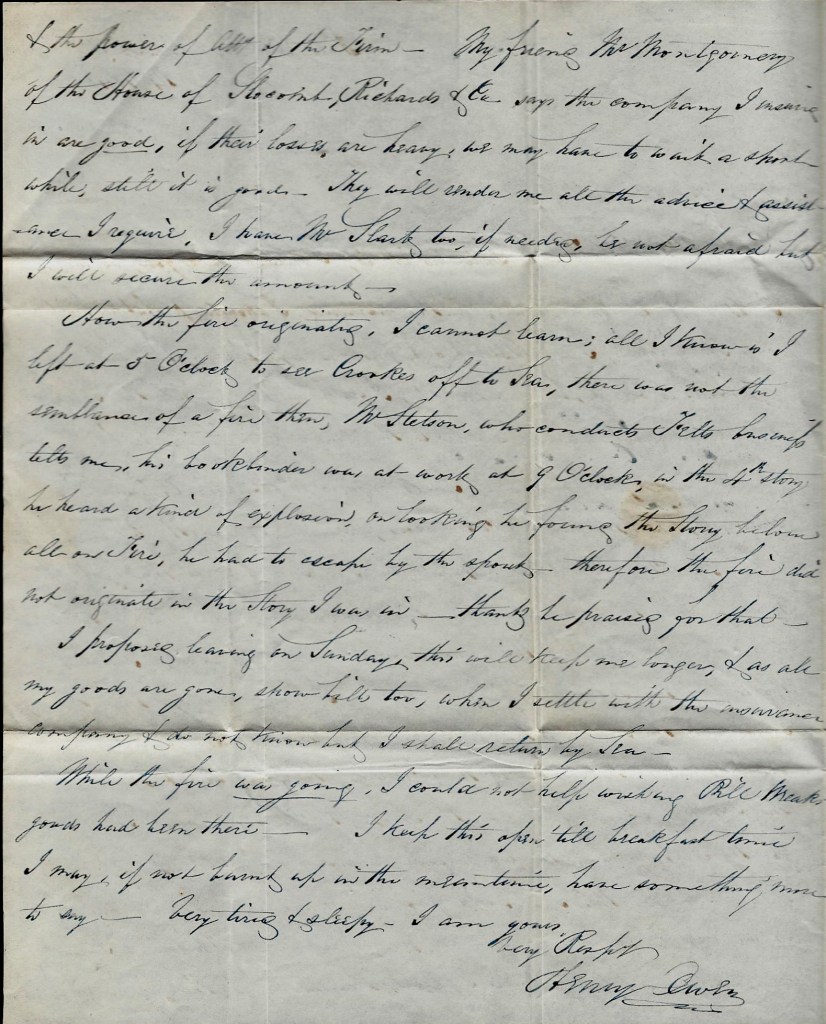 & the power of Atty of the Firm — My friend Mr Montgomery
of the House of Slocomb, Richards & Co says the company I insure
in are good, if their losses are heavy, we may have to wait a short
while, still it is good — They will render me all the advice & assist-
-ance I require, I have Mr Stark too, if needed, be not afraid but
I will secure the amount —
How the fire originated, I cannot learn; all I know is I
left at 5 O'Clock to see Crookes off to Sea, there was not the
semblance of a fire then, Mr Stetson, who conducts Felts business
tells me, his bookbinder was at work at 9 O'Clock, in the 4th story
he heard a kind of explosion, on looking he found the Story below
all on Fire, he had to escape by the spout — therefore the fire did
not originate in the Story I was in — thanks be praised for that —
I proposed leaving on Sunday, this will keep me longer, & as all
my goods are gone, show bill too, when I settle with the insurance
company I do not know but I shall return by Sea —
While the fire was going, I could not help wishing Pill
goods had been there — I keep this open 'till breakfast time
I may, if not burnt up in the meantime, have something more
to say — Very tired & sleepy — I am yours
Very Respy
Henry Owen